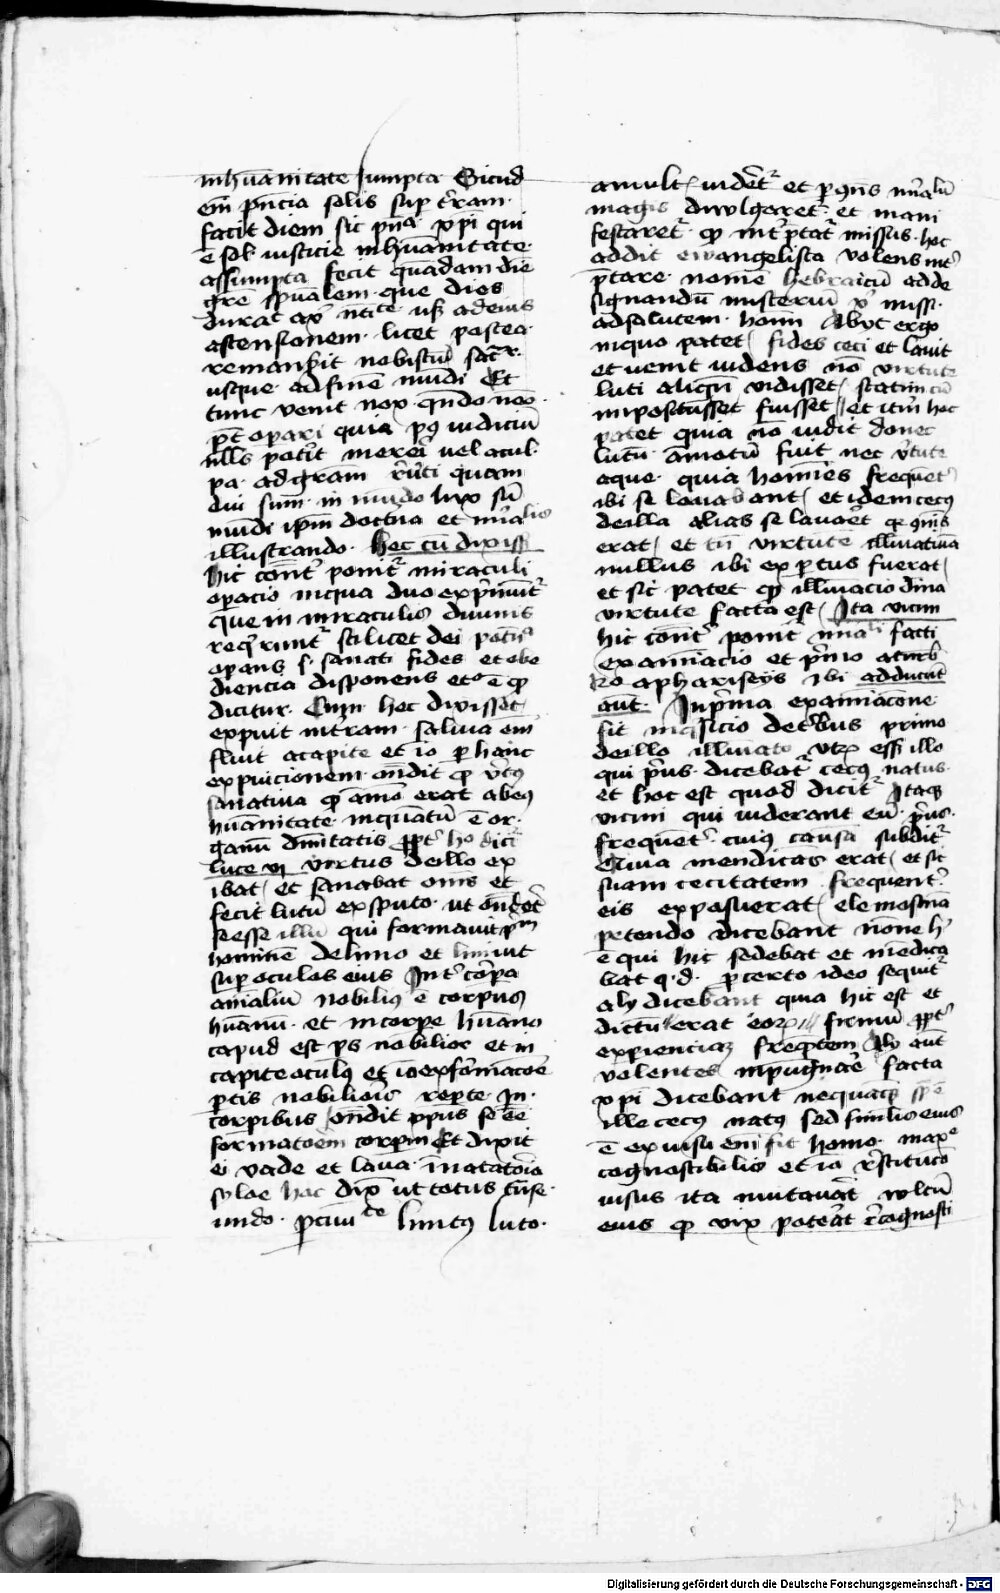 inhūanitate sumpta Sicud
em̄ pn̄cia solis sup tr̄ram
facit diem sic pn̄a xp̄i qui
ē sol iusticie inhūanitate
assumpta fecit quādam diē
gr̄e sp̄ualem que dies
durat
astensionem licet postea
remansit nobiscū
usque ad finē mūdi Et
tunc venit nox qn̄do nēo
pt̄ op̄ari quia pꝰ iudiciū
nllꝰ potit mereri uel a cul
pa ad gr̄am
diu sum in mūdo lux sū
mūdi ip̄m doctīa et
illustrando Hec cū dixiss
hic cont̄ ponit᷑ miraculi
op̄acio in qua duo exp̄imūt᷑
que in miraculis diuinis
req̄runt᷑ scilicet dei
op̄ans sanati fides et obe
diencia disponens et ē ꝙ
dicitur Cum hec dixisset
expuit in t̄ram saliua em̄
fluit a capite et iō p hanc
expuicionem on̄dit ꝙ v̄tꝰ
sanatiua erat ab eiꝰ
hūanitate inquātū ē or
ganū diuinitatis ꝓpt᷑ hͦ dicit᷑
luce vi virtus de illo ex
ibat et sanabat om̄s et
fecit lutū ex sputo ut on̄d̄et
se esse illū qui formauit pͥm
hominē de limo et liniuit
sup oculos eius Int᷑ corp̄a
aīaliū nobiliꝰ ē corpus
hūanū et in corpe hūano
capud est ps nobilior et in
capite oculꝰ et iō ex formacōe
p̄tis nobilioris
corpibus on̄dit
formatoēm corpim Et dixit
ei vade et laua in natatoria
syloe hoc dix̄ ut totus
undo linitꝰ luto
a mult᷑ uidet᷑ et p qn̄s
magis diuulgaret᷑ et mani
festaret᷑ ꝙ int᷑ptat᷑ missus hoc
addit ewangelista volens int᷑
p̄tare nomē hebraicū ad de
signandū misteriū xͥ missi
ad salutem hoīm Abyt ergo
in quo patet fides ceci et lauit
et uenit uidens nō virtute
luti aliqn̄ vidisset statim cū
impositū fuisset et itm̄ hoc
patet quia nō uidit donec
lutū amotū fuit nec v̄tute
aque quia homīes frequēt᷑
ibi se lauabant et idem cecꝰ
de illa alias se lauaēt
erat et tn̄ virtutē illūīatiuā
nullus ibi exp̄tus fuerat
et sic patet ꝙ illūīacio dīna
virtute facta est Ita vicini
hic cont̄ ponit᷑ facti
examīacio et pͥmo a turb
2o a phariseys ibi adducūt
aut̄ In pͥma examīacōne
fit inqͥsicio de t̄bus primo
de illo illūīato vtrū esset ille
qui pͥus dicebat᷑ cecꝰ natus
et hoc est quod dicit᷑ Itaqꝫ
vicini qui uiderant eū pͥus
frequēt᷑ cuiꝰ causā subdit᷑
Quia mendicus erat et sic
suam cecitatem frequent᷑
eis exposuerat elemosina
petendo dicebant nōne hͥ
ē qui hic sedebat et mēdica
bat q d p certo ideo sequit᷑
aly dicebant quia hic est et
dictū erat eoꝝ firmū ꝓpt᷑
expienciam freqn̄tem Aly aut̄
volentes inpugnāe facta
xp̄i dicebant nequaꝗ̄
ille cecꝰ natꝰ sed similis eiꝰ
ē ex uisu em̄ fit homo maxͤ
cognoscibilis et iō r̄stitucō
uisus ita mutauāt wltū
eius ꝙ vix poteāt r̄cognosci
Digitalisierung gefördert durch die Deutsche Forschungsgemeinschaft - DFG